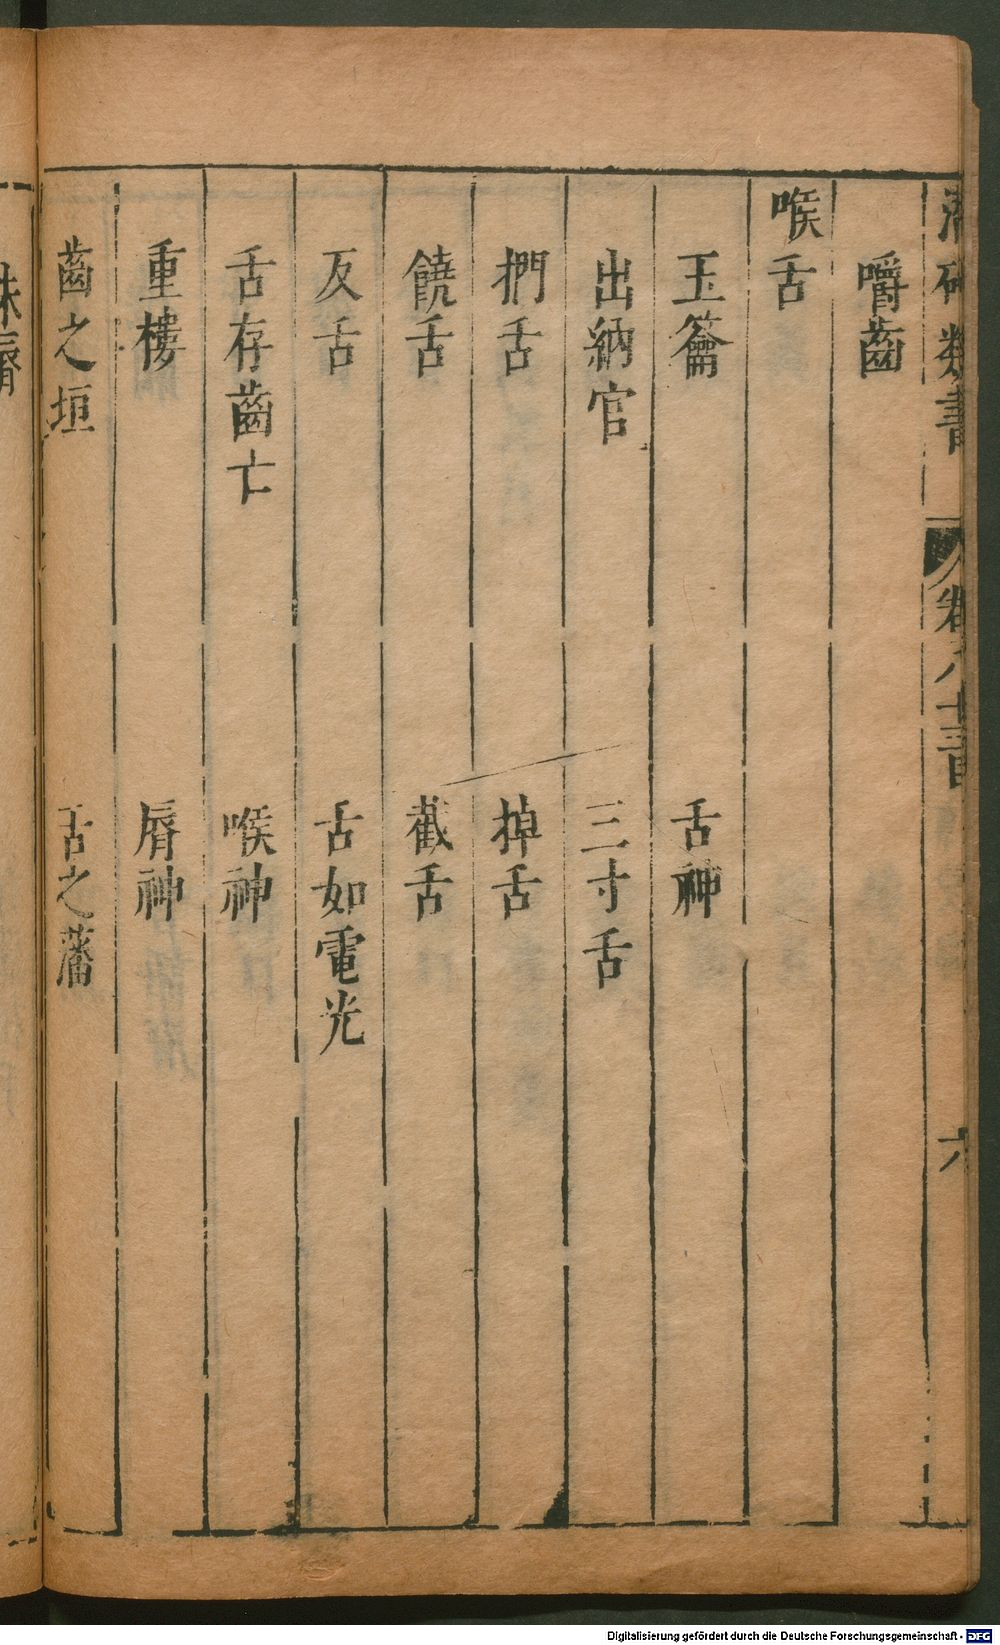 潛確類書 卷八十三目 六
嚼齒
喉舌
玉籥 舌神
出納官 三寸舌
捫舌 掉舌
饒舌 截舌
反舌 舌如電光
舌存齒亡 喉神
重樓 脣神
齒之垣 舌之藩
Digitalisierung gefördert durch die Deutsche Forschungsgemeinschaft - DFG